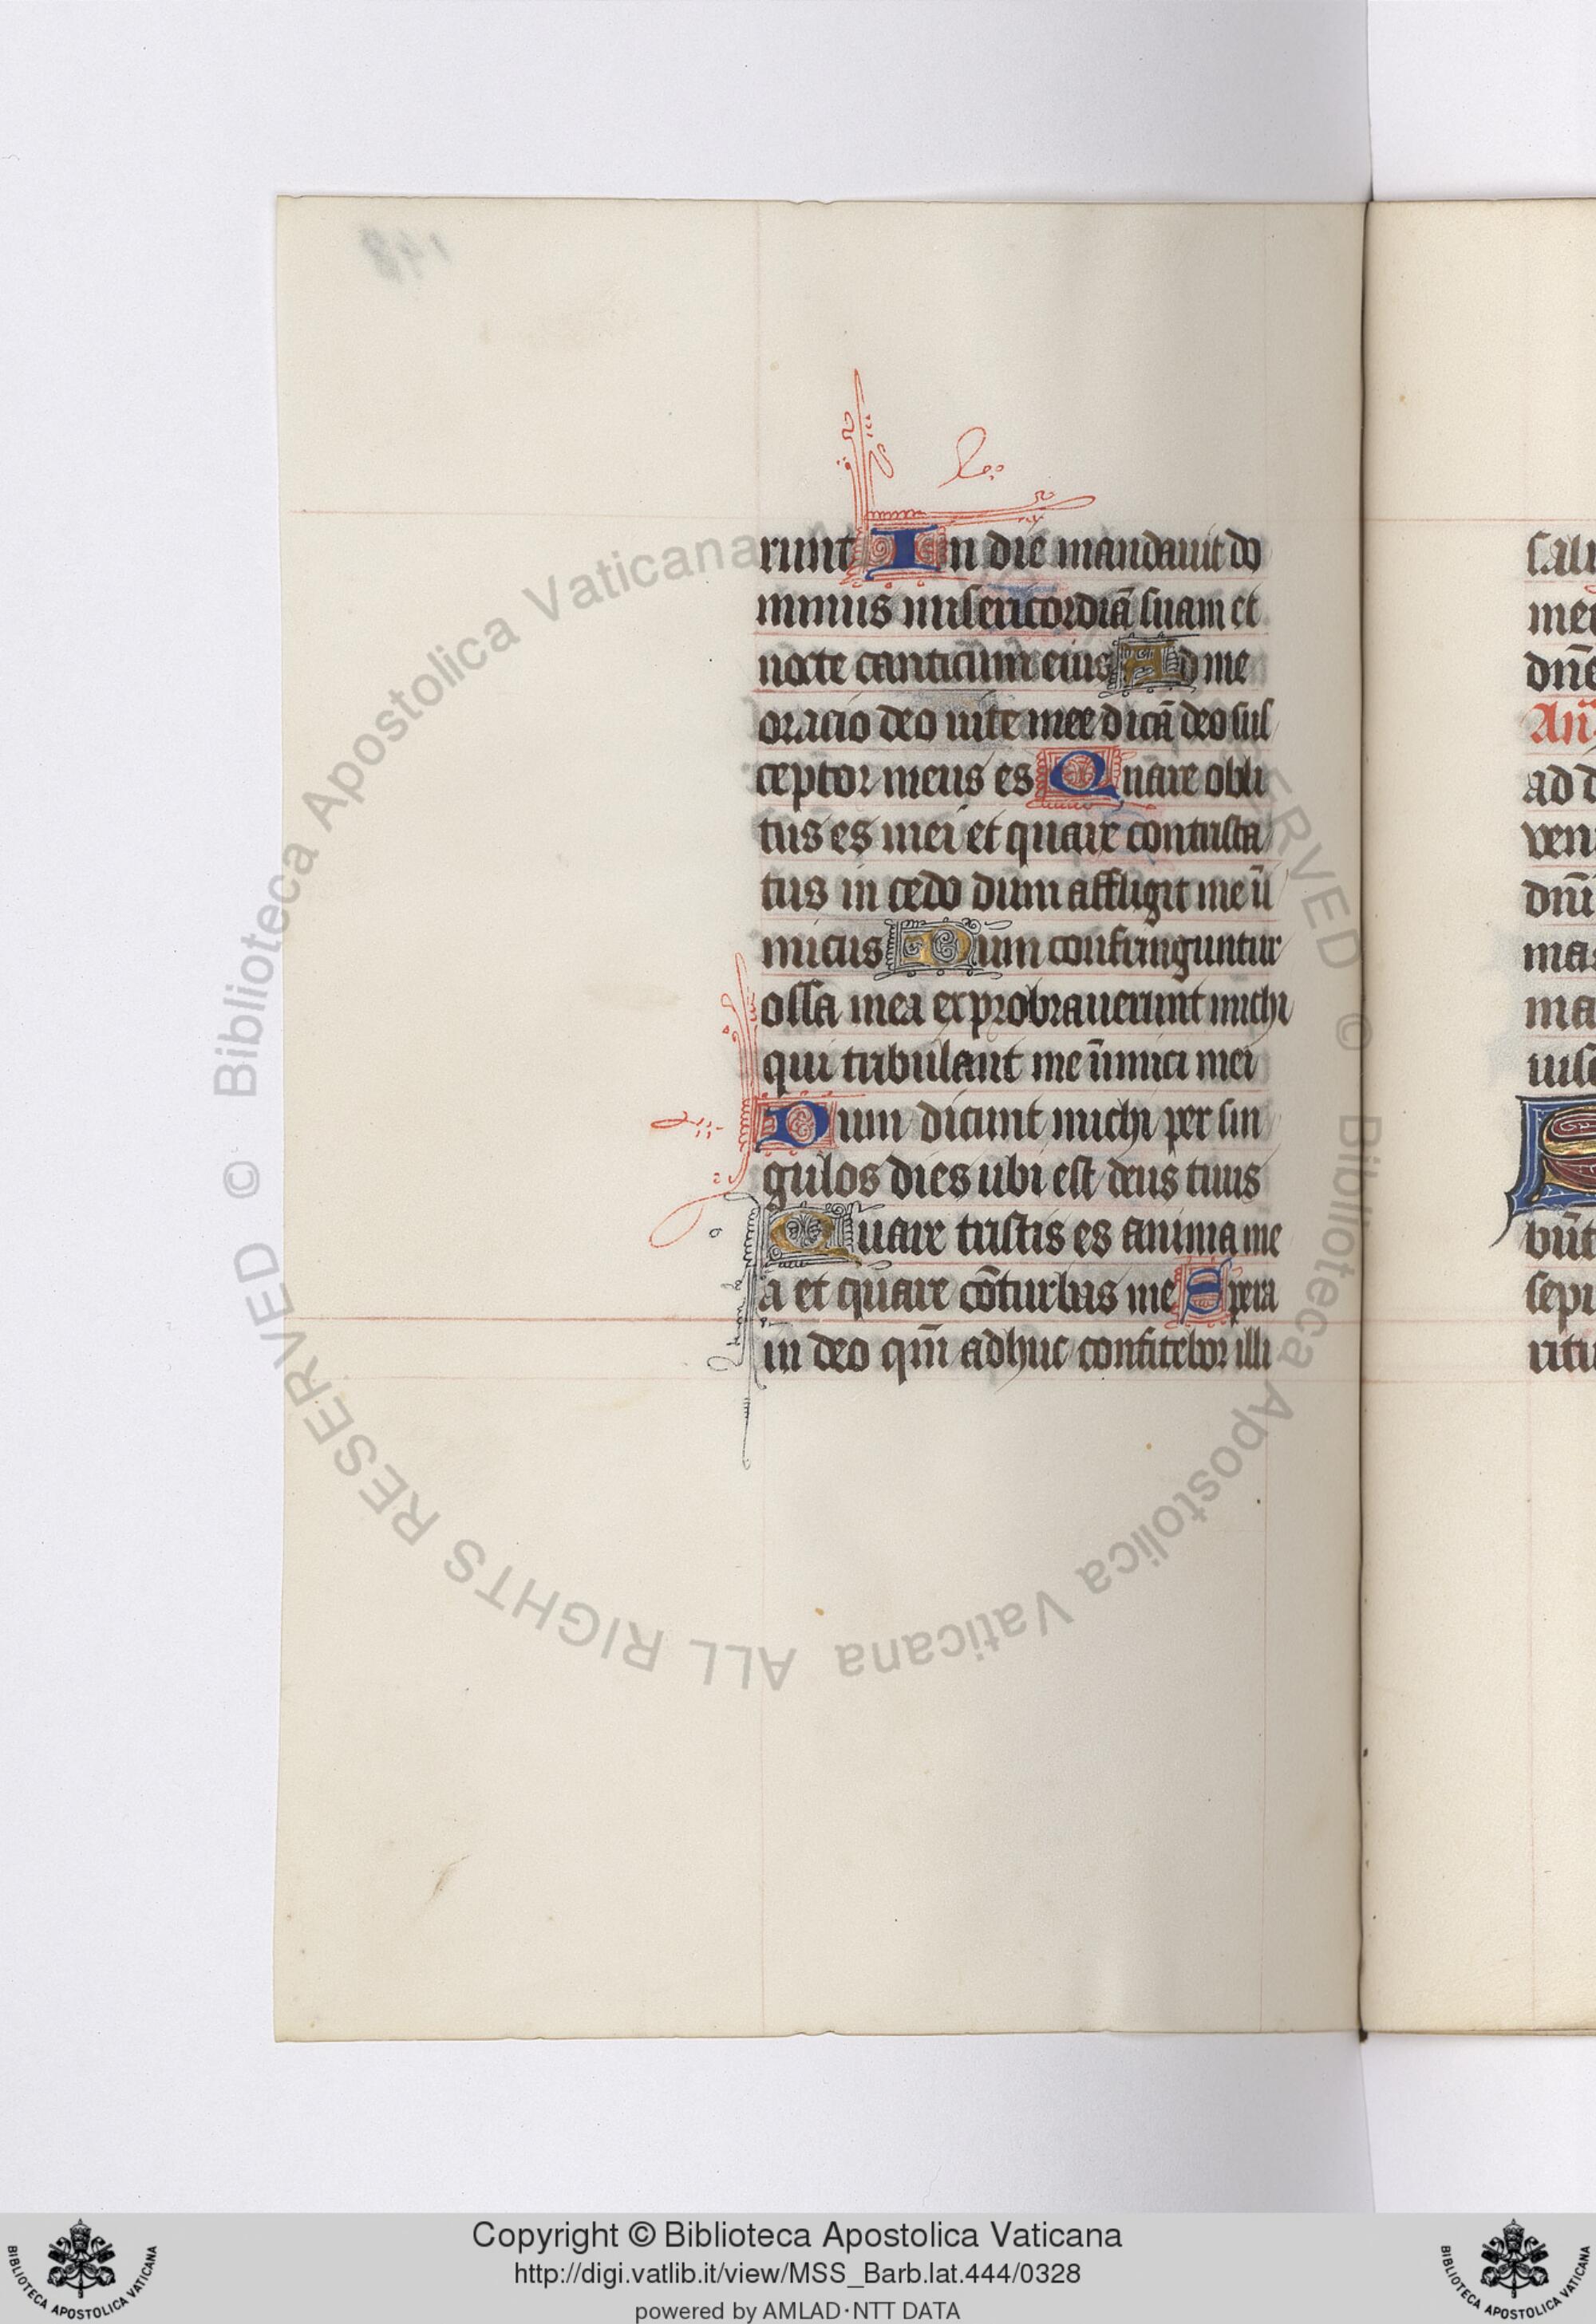 runt In die mandauit do
minus misericordiā suam et
nocte canticum eius Ad me
oracio deo uite mee dicā deo sus
ceptor meus es Quare obli
tus es mei et quare contrista
tus in cedo dum affligit me ini
micus Dum confringuntur
ossa mea exprobrauerunt michi
qui tribulant me inimici mei
Dum dicunt michi per sin
gulos dies ubi est deus tuus
Quare tristis es anima me
a et quare cōturbas me Spera
in deo qm̄ adhuc confitebor illi
salu
me
dn̄e
An̄
ad d
ven
dn̄i
ma
ma
uis
būt
sepi
ritu
© Biblioteca Apostolica Vaticana ALL RIGHTS RESERVED
Copyright © Biblioteca Apostolica Vaticana
http://digi.vatlib.it/view/MSS_Barb.lat.444/0328
powered by AMLAD·NTT DATA
BIBLIOTECA APOSTOLICA VATICANA
BIBLIOTECA APOSTOLICA VATICANA